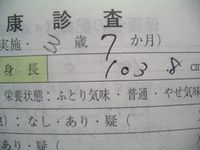 康診査
実施・3歳7か月)
身長 103.8cm
栄養状態：ふとり気味・普通・やせ気味
): なし・あり・疑(
あり・疑(